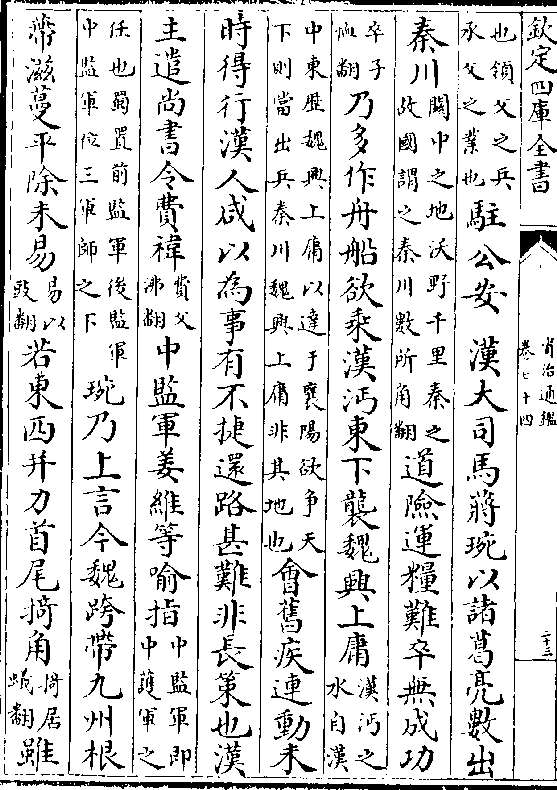 欽定四庫全書
資治通鑑
卷七十四
十三
也領父之兵
承父之業也
駐公安　漢大司馬蔣琬以諸葛亮數出
秦川
關中之地沃野千里秦之
故國謂之秦川數所角翻
道險運糧難卒無成功
卒子
恤翻
乃多作舟船欲乘漢沔東下襲魏興上庸
漢沔之
水自漢
中東歷魏興上庸以達于襄陽欲争天
下則當出兵秦川魏興上庸非其地也
會舊疾連動未
時得行漢人咸以為事有不捷還路甚難非長策也漢
主遣尚書令費禕
費父
沸翻
中監軍姜維等喻指
中監軍即
中護軍之
任也蜀置前監軍後監軍
中監軍位三軍師之下
琬乃上言今魏跨帶九州根
蔕滋蔓平除未易
易以
豉翻
若東西并力首尾掎角
掎居
蟻翻
雖